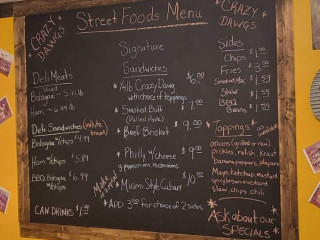 CRAZY DAWGS
Street Foods Menu
CRAZY DAWGS
Deli Meats
Sliced
Bologna
Ham
Deli Sandwiches (White bread)
Bologna w/chips $4.99
Ham w/chips $5.89
BBQ Bologna w/chips $6.99
CAN DRINKS $1.50
Signature
Sandwiches
1/4lb Crazy Dawg $6.00
with choice of toppings
Smoked Butt $7.00
(Pulled Pork)
Beef Brisket $9.00
Philly w/cheese $9.00
Peppers, onions, mushrooms
Miami Style Cubano $10.00
* ADD $3.00 for choice of 2 sides
Sides
Chips $1.00
Fries $3.00
Smoked Mac $1.99
Slaw $1.99
BBQ Beans $1.99
Toppings
onions (grilled or raw)
pickles, relish, kraut
banana peppers, jalapeno
Mayo, ketchup, mustard
spicy brown mustard
slaw, chips, chili
Ask about our
SPECIALS